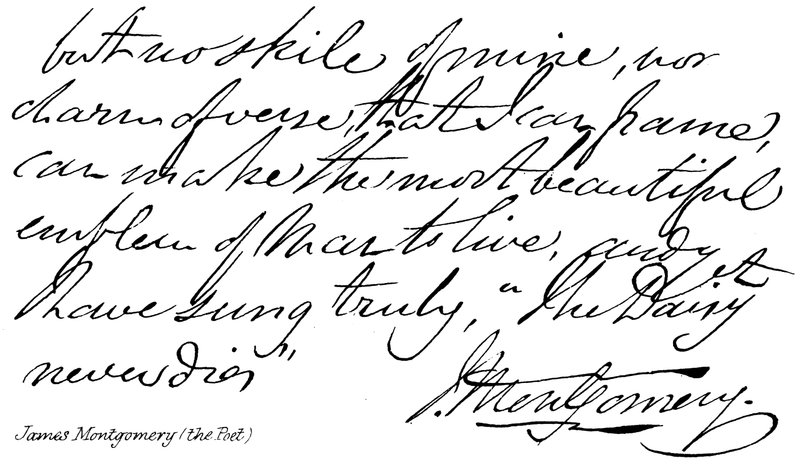 but no skill of mine, nor
charm of verse, that I can frame,
can make the most beautiful
emblem of Man to live, and yet
I have sung truly, "The Daisy
never dies"
J. Montgomery.
James Montgomery (the Poet)